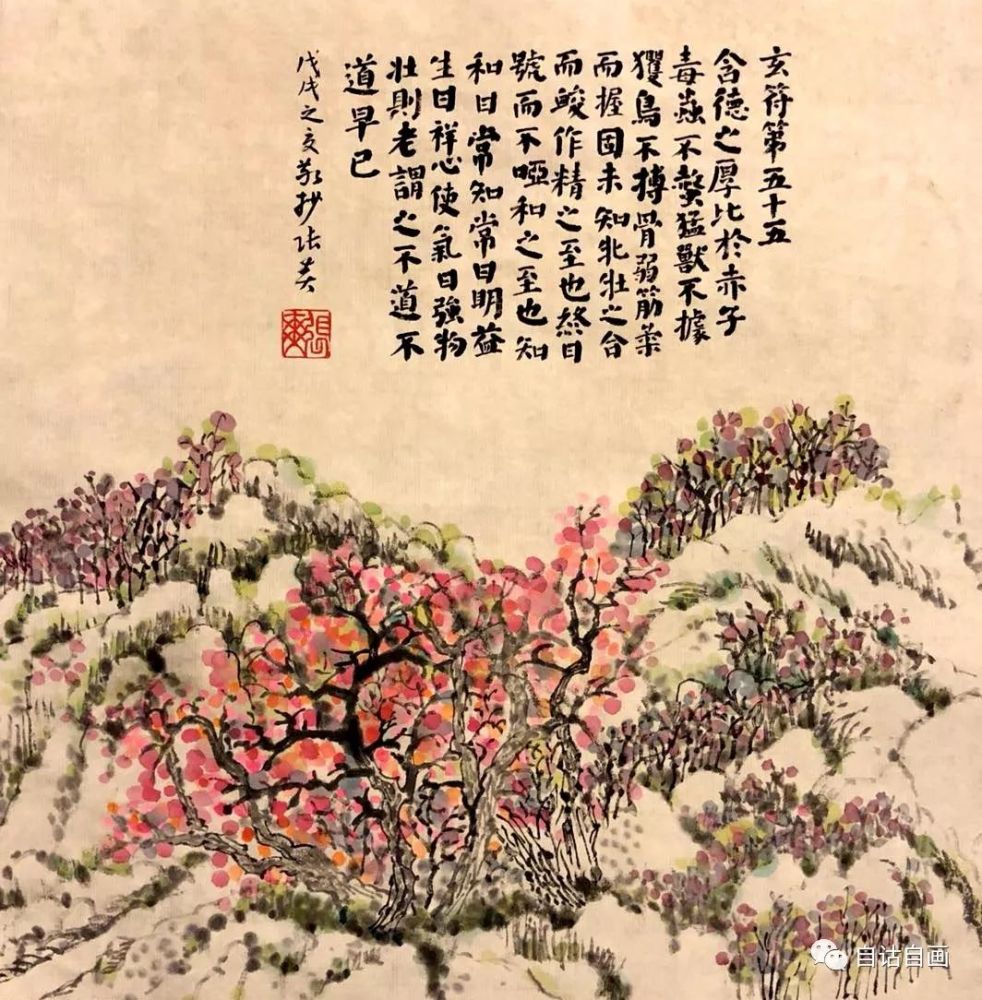 玄符第五十五
含德之厚比於赤子
毒蟲不螫猛獸不據
玃鳥不搏骨弱筋柔
而握固未知牝牡之合
而朘作精之至也終日
號而不啞和之至也知
和曰常知常曰明益
生曰祥心使氣曰強物
壯則老謂之不道不
道早已
戊戌之夏敬抄张
自话自画